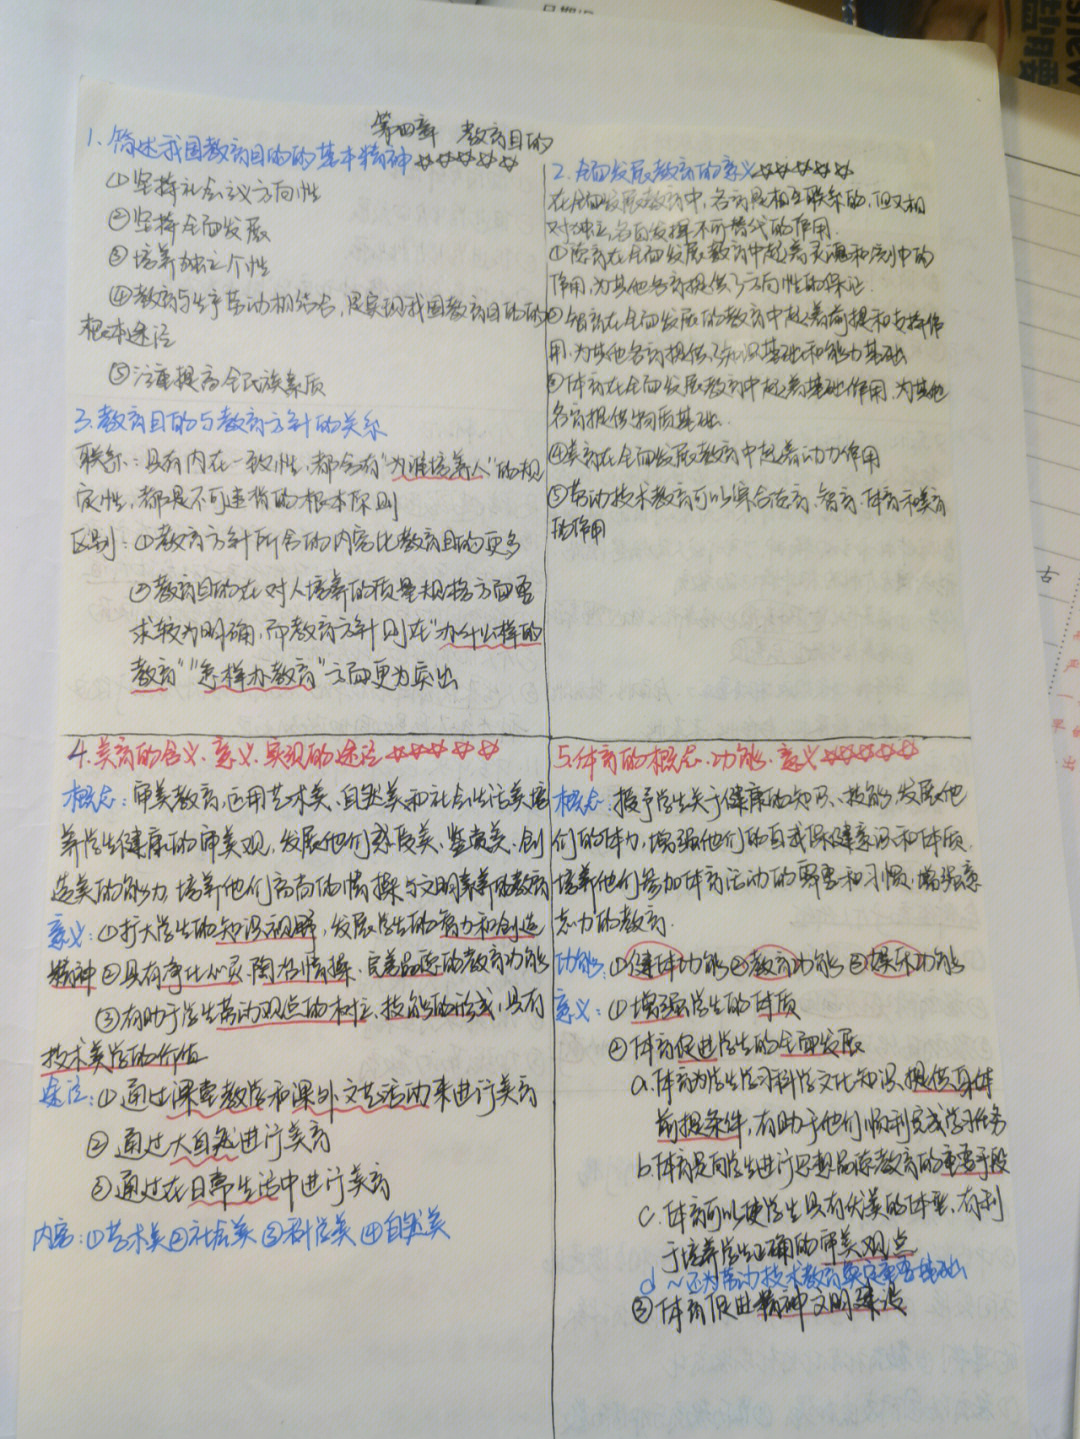 第四章 教育目的
1. 简述我国教育目的的基本精神☆☆☆☆☆
①坚持社会主义方向性
②坚持全面发展
③培养独立个性
④教育与生产劳动相结合，是实现我国教育目的的
根本途径
⑤注重提高全民族素质
2. 全面发展教育的意义☆☆☆☆☆
在全面发展教育中，各育是相互联系的，但又相
对独立，各自发挥不可替代的作用.
①德育在全面发展教育中起着灵魂和统帅的
作用，为其他各育提供了方向性的保证.
②智育在全面发展的教育中起着前提和支持作
用，为其他各育提供了知识基础和能力基础
③体育在全面发展教育中起着基础作用，为其他
各育提供物质基础.
④美育在全面发展教育中起着动力作用
⑤劳动技术教育可以综合德育、智育、体育和美育
的作用
3. 教育目的与教育方针的关系
联系：具有内在一致性，都含有"为谁培养人"的规
定性，都是不可违背的根本原则
区别：①教育方针所含的内容比教育目的更多
②教育目的在对人培养的质量规格方面要
求较为明确，而教育方针则在"办什么样的
教育""怎样办教育"方面更为突出
4. 美育的含义、意义、实现的途径☆☆☆☆☆
概念：审美教育，运用艺术美、自然美和社会生活美培
养学生健康的审美观，发展他们感受美、鉴赏美、创
造美的能力，培养他们高尚的情操与文明素养的教育
意义：①扩大学生的知识视野，发展学生的智力和创造
精神 ②具有净化心灵、陶冶情操、完善品德的教育功能
③有助于学生劳动观点的树立、技能的形成，具有
技术美学的价值
途径：①通过课堂教学和课外文艺活动来进行美育
②通过大自然进行美育
③通过在日常生活中进行美育
内容：①艺术美②社会美 ③科学美 ④自然美
5. 体育的概念、功能、意义☆☆☆☆☆
概念：授予学生关于健康的知识、技能，发展他
们的体力，增强他们的自我保健意识和体质，
培养他们参加体育活动的需要和习惯，增强意
志力的教育.
功能：①健体功能②教育功能③娱乐功能
意义：①增强学生的体质
②体育促进学生的全面发展
a. 体育为学生学习科学文化知识，提供身体
前提条件，有助于他们顺利完成学习任务
b. 体育是向学生进行思想品德教育的重要手段
c. 体育可以使学生具有优美的体型，有利
于培养学生正确的审美观点
d ~还为劳动技术教育奠定重要基础
③体育促进精神文明建设